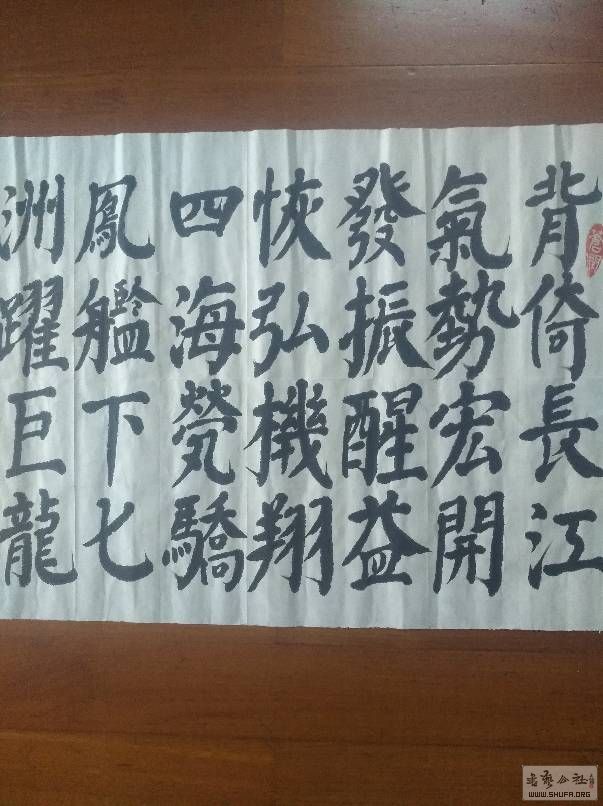 背倚長江
氣勢宏開
發振醒益
恢弘機翔
四海煢驕
鳳艦下七
洲躍巨龍
WWW.SHUFA.ORG